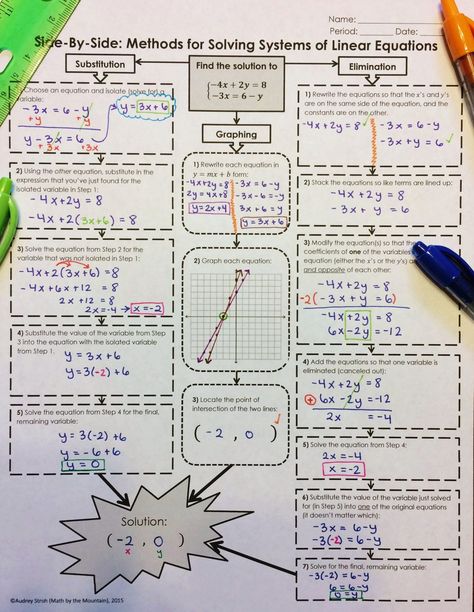 Name:
Period: Date:
Side-By-Side: Methods for Solving Systems of Linear Equations
Substitution
Choose an equation and isolate (solve for) a
variable:
-3x = 6 - y
+y +y
y - 3x = 6
+3x +3x
y = 3x + 6
2) Using the other equation, substitute in the
expression that you've just found for the
isolated variable in Step 1:
-4x + 2y = 8
-4x + 2(3x+6) = 8
3) Solve the equation from Step 2 for the
variable that was not isolated in Step 1:
-4x + 2(3x+6) = 8
-4x + 6x + 12 = 8
2x + 12 = 8
2x = -4 → x = -2
4) Substitute the value of the variable from Step
3 into the equation with the isolated variable
from Step 1:
y = 3x + 6
y = 3(-2) + 6
5) Solve the equation from Step 4 for the final,
remaining variable:
y = 3(-2) + 6
y = -6 + 6
y = 0
Find the solution to
-4x + 2y = 8
-3x = 6 - y
Graphing
1) Rewrite each equation in
y = mx + b form:
-4x+2y = 8
2y = 4x+8
y = 2x+4
-3x = 6-y
-3x-6 = -y
3x+6 = y
y = 3x+6
2) Graph each equation:
3) Locate the point of
intersection of the two lines:
( -2 , 0 )
Elimination
1) Rewrite the equations so that the x's and y's
are on the same side of the equation, and the
constants are on the other.
-4x + 2y = 8
-3x = 6 - y
-3x + y = 6
2) Stack the equations so like terms are lined up:
-4x + 2y = 8
-3x + y = 6
3) Modify the equation(s) so that the
coefficients of one of the variables
equation (either the x's or the y's) are
and opposite of each other:
-4x + 2y = 8
-2(-3x + y = 6)
-4x + 2y = 8
6x - 2y = -12
4) Add the equations so that one variable is
eliminated (canceled out):
-4x + 2y = 8
+ 6x - 2y = -12
2x = -4
5) Solve the equation from Step 4:
2x = -4
x = -2
6) Substitute the value of the variable just solved
for (in Step 5) into one of the original equations
(it doesn't matter which):
-3x = 6 - y
-3(-2) = 6 - y
7) Solve for the final, remaining variable:
-3(-2) = 6 - y
6 = 6 - y
0 = y
Solution:
( -2 , 0 )
x y
©Audrey Stroh (Math by the Mountain), 2015